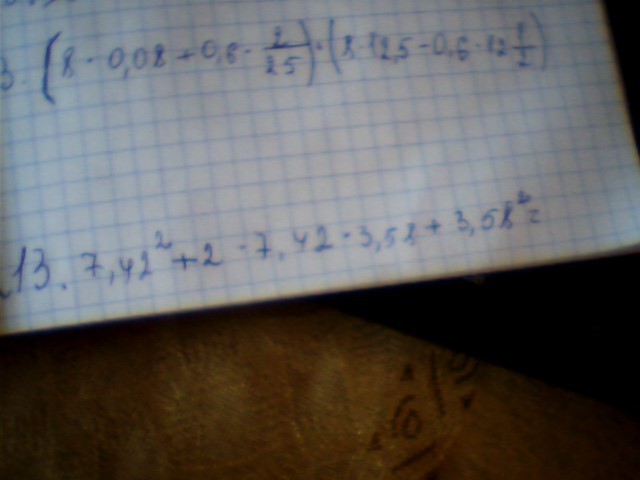 3. (8 · 0,08 + 0,6 · 2/25) · (8 · 12,5 - 0,6 · 12 1/2)
13. 7,42² + 2 · 7,42 · 3,58 + 3,58² =